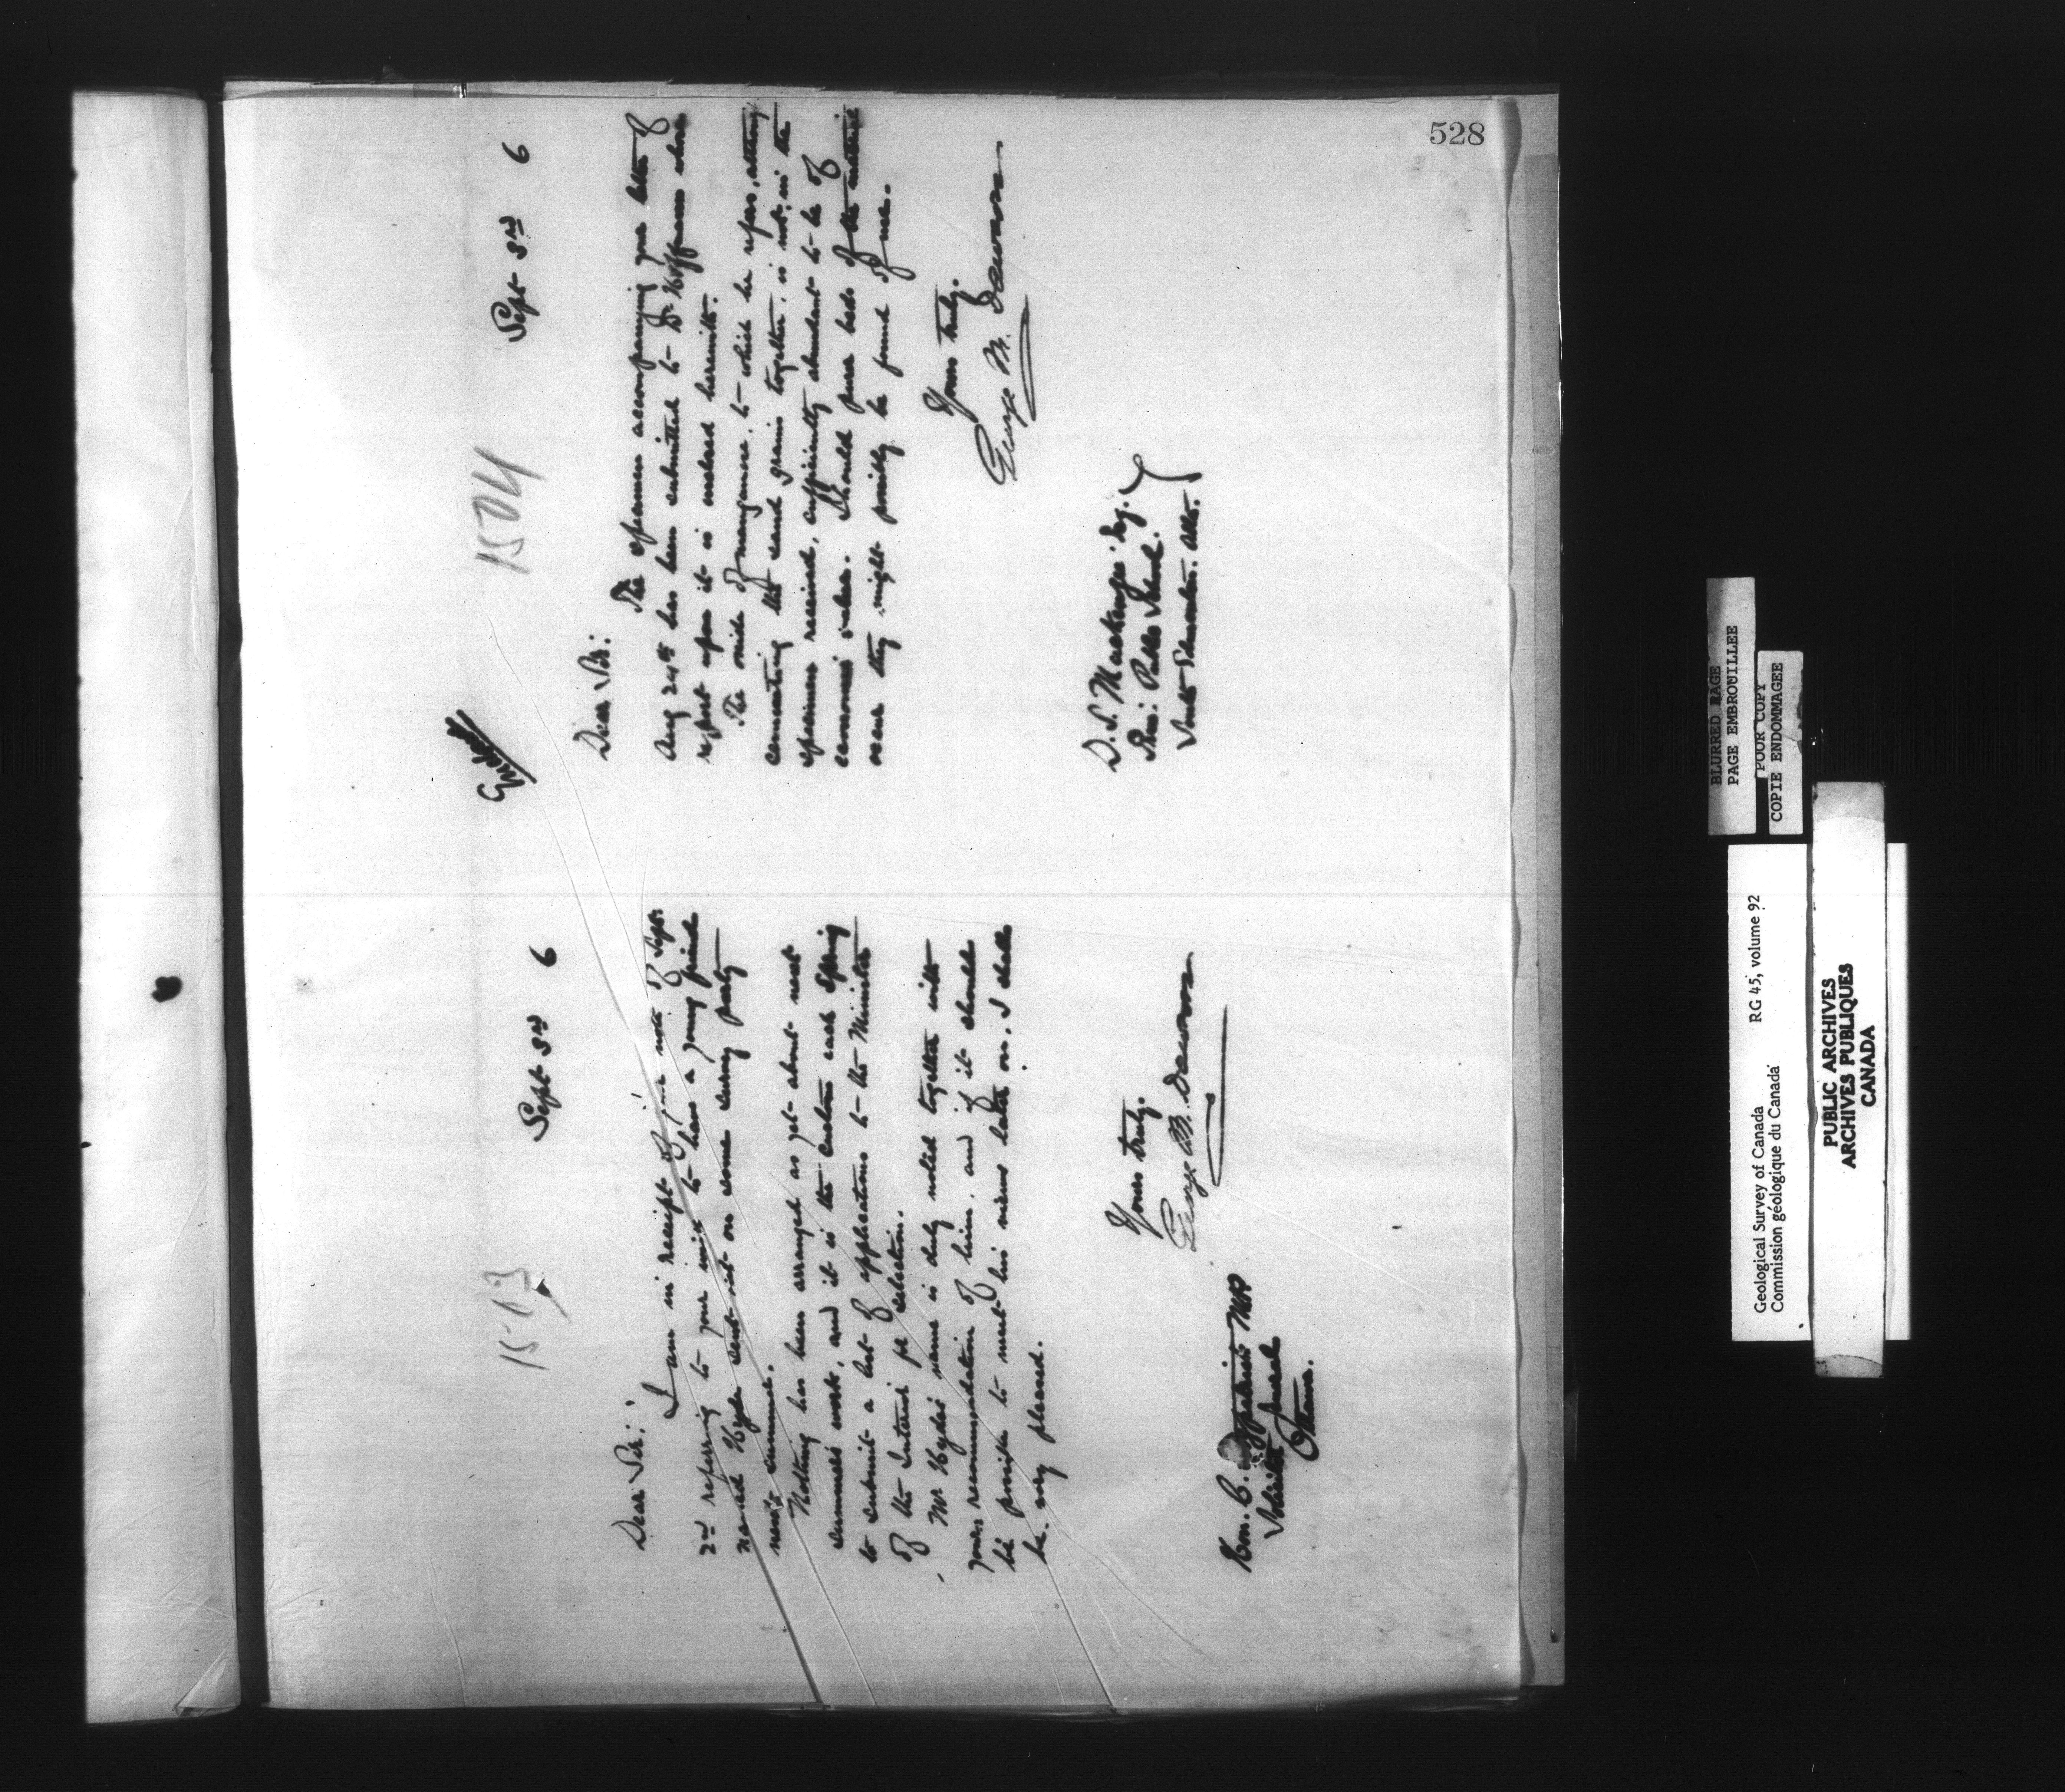 528
1503
Sept 3rd 6
Dear Sir:
I am in receipt of your note of Sept.
2nd referring to your wish to have a young friend
named Hyde sent out on some survey party
next summer.
Nothing has been arranged as yet about next
summer's work, and it is the custom each Spring
to submit a list of applications to the Minister
of the Interior for selection.
Mr Hyde's name is duly noted together with
your recommendation of him, and if it should
be possible to meet his views later on, I shall
be very pleased.
Yours truly.
George M. Dawson
Hon. C. Fitzpatrick MP
Solicitor General
Ottawa.
1504
Sept 3rd 6
Dear Sir:
The specimen accompanying your letter of
Aug 24th has been submitted to Dr Hoffmann whose
report upon it is enclosed herewith.
The oxide of manganese, to which he refers, altho
cementing the sand grains together, is not, in the
specimens received, sufficiently abundant to be of
economic value. Should purer beds of the material
occur they might possibly be found of use.
Yours truly.
George M. Dawson
D. S. Mackenzie Esq.
Prin: Public School.
South Edmonton. Alta.
BLURRED PAGE
PAGE EMBROUILLEE
POOR COPY
COPIE ENDOMMAGEE
Geological Survey of Canada RG 45, volume 92
Commission géologique du Canada
PUBLIC ARCHIVES
ARCHIVES PUBLIQUES
CANADA